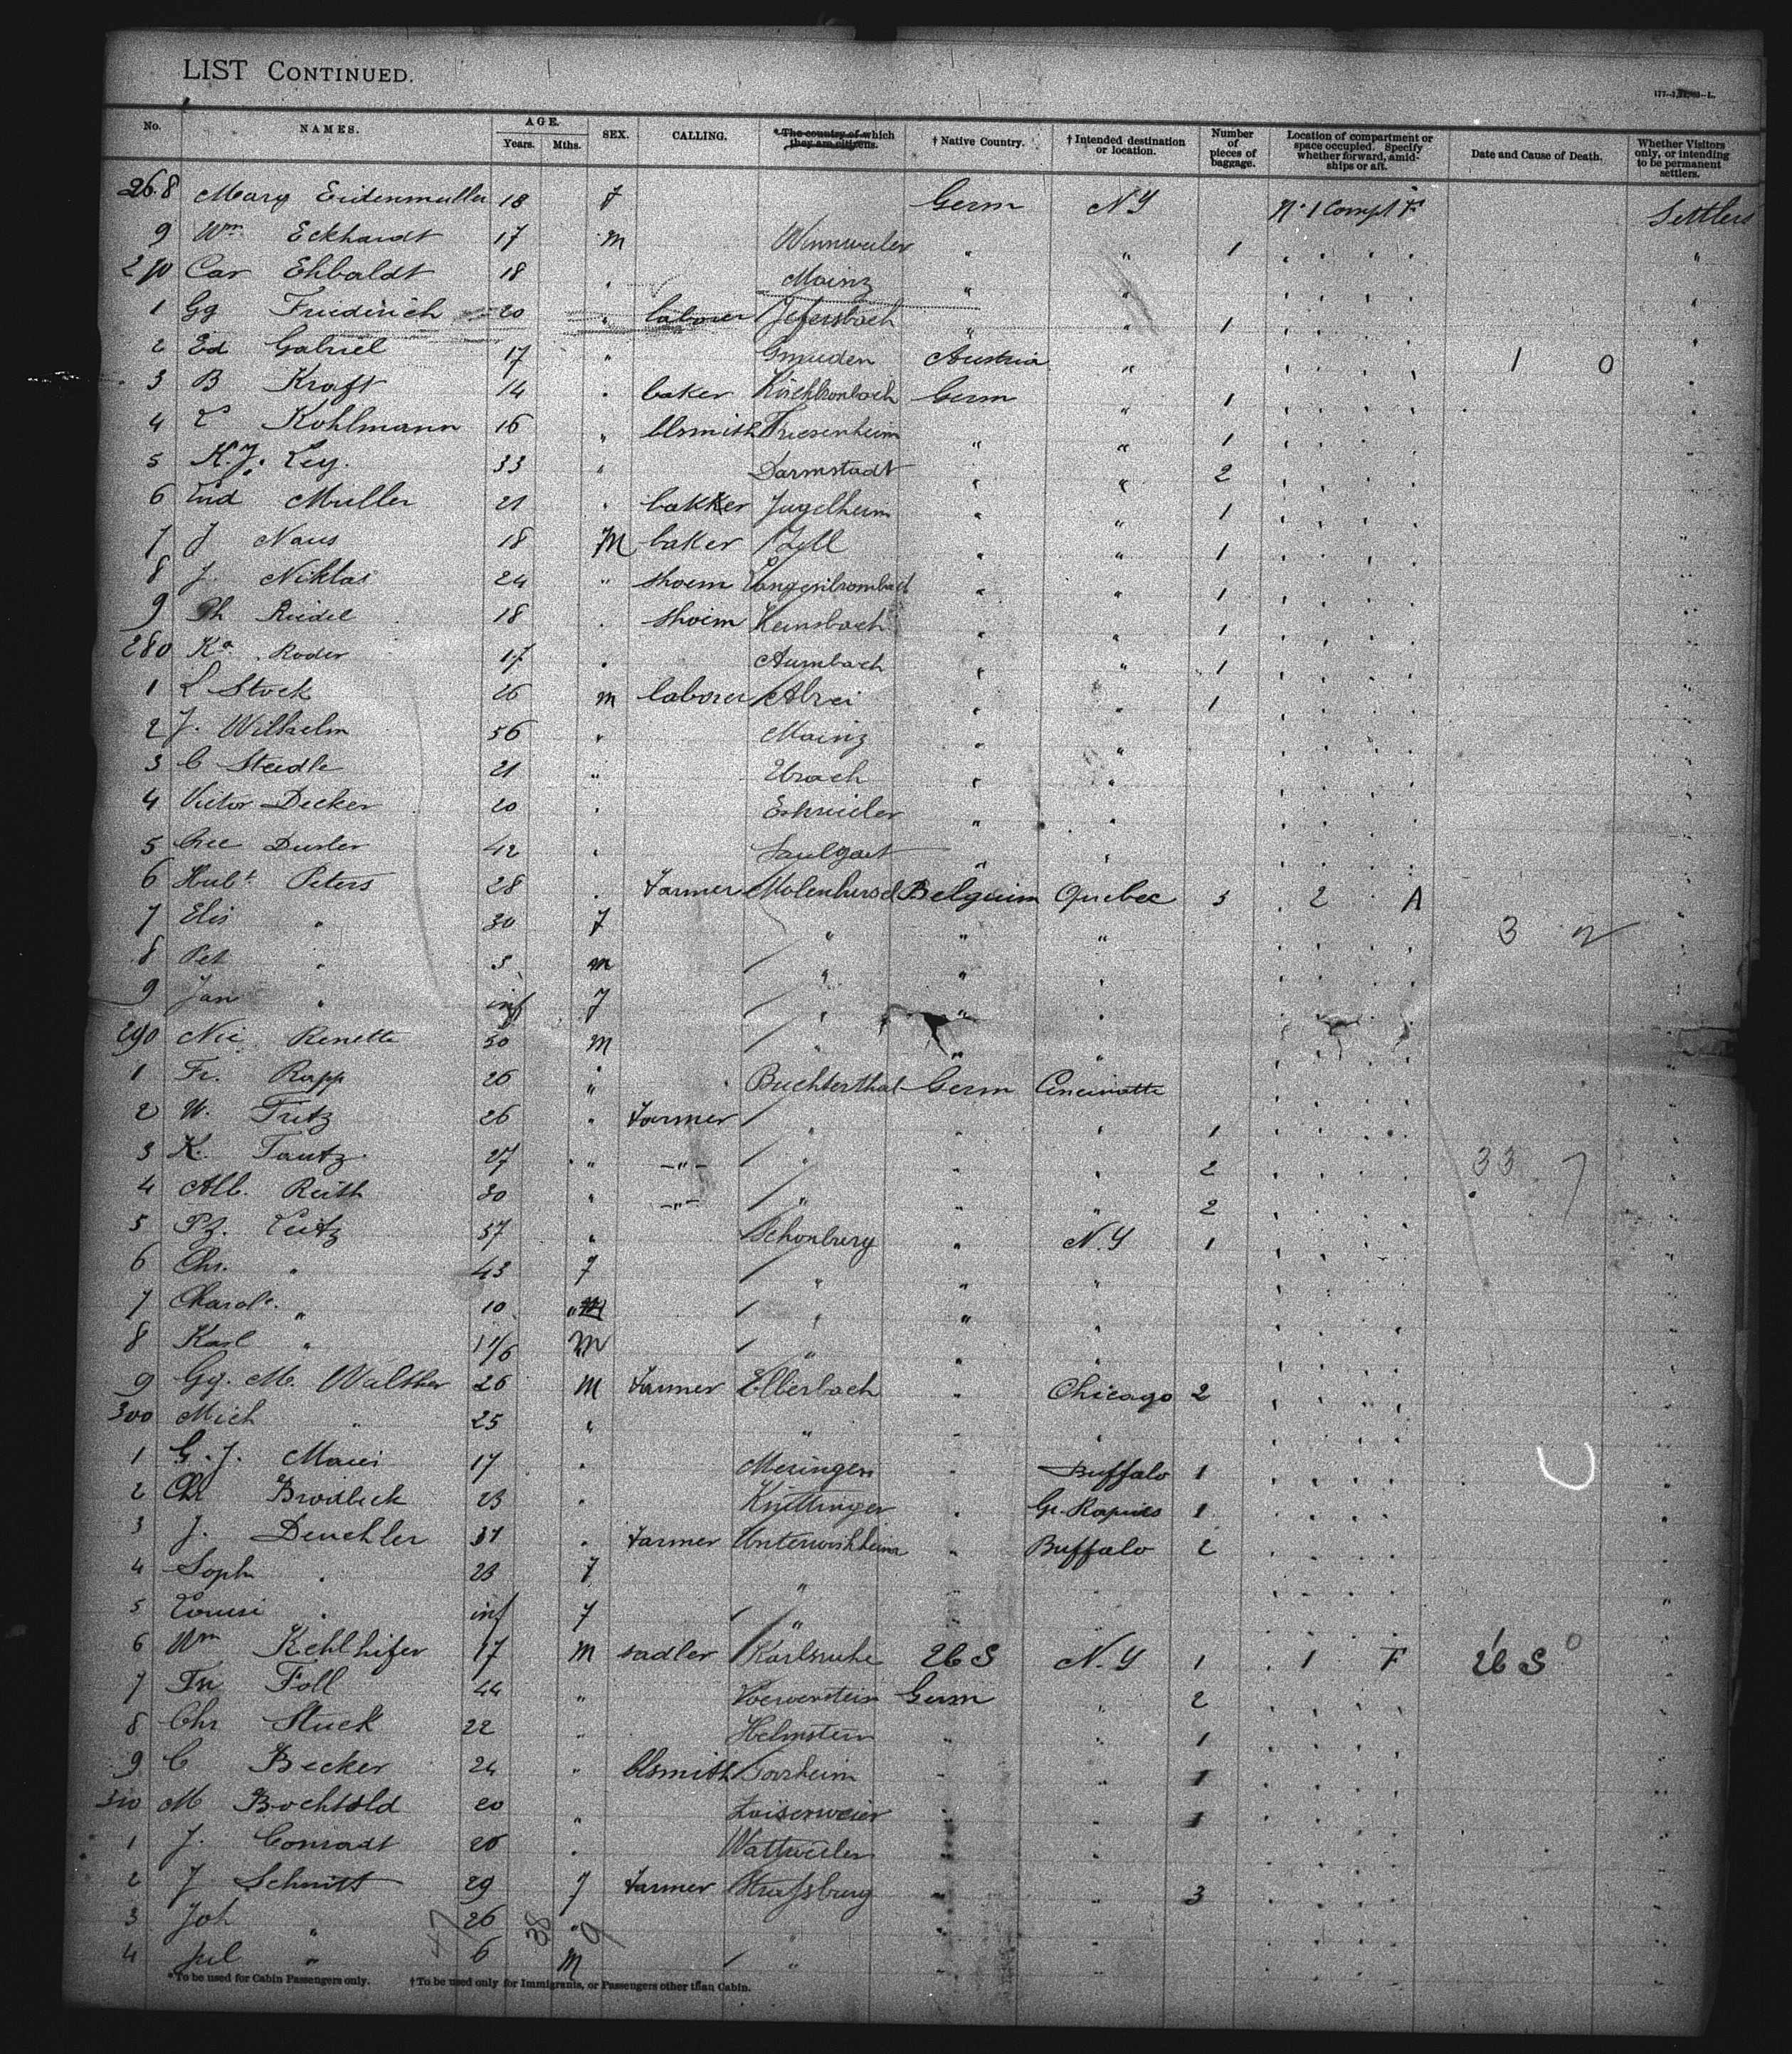 LIST CONTINUED.
No. NAMES. AGE. Years. Mths. SEX. CALLING. * The country of which they are citizens. † Native Country. † Intended destination or location. Number of pieces of baggage. Location of compartment or space occupied. Specify whether forward, amidships or aft. Date and Cause of Death. Whether Visitors only, or intending to be permanent settlers.
268 Mary Eidenmuller 18 F Germ NY No 1 Compt F Settlers
9 Wm Eckhardt 17 M Winnweiler " " 1 "
270 Car Ehbaldt 18 " Mainz " " "
1 Gg Friedirich 20 " laborer " " 1 "
2 Ed Gabriel 17 " Gmuden Austria " 1 0 "
3 B Kraft 14 " baker Kirchbrombach Germ " 1 "
4 Kohlmann 16 " blsmith Friesenheim " " 1 "
5 K. J. Ley. 33 " Darmstadt " " 2 "
6 Muller 21 " bakker Jugelheim " " 1 "
7 J Naus 18 M baker Zell " " 1 "
8 J. Niklas 24 " shoem Langenbrombach " " 1 "
9 Ph Riedel 18 " shoem " " 1 "
280 Ka Roder 17 " Aumbach " " 1 "
1 L Stock 26 M laborer Alzei " " 1 "
2 J. Wilhelm 56 " Mainz " " "
3 C Steidle 21 " Urach " " "
4 Victor Decker 20 " Eshweiler " " "
5 42 " Saulgart " " "
6 Hubt. Peters 28 " Farmer Belguim Quebec 3 2 A "
7 Elis " 30 F " " " 3 2 "
8 Pet " 3 M " " " "
9 Jan " inf F " " " "
290 Nic Renette 30 M " " " "
1 Fr. Rapp 26 " Buchterthal Germ Cincinatte "
2 W. Fritz 26 " Farmer " " " 1 "
3 K. Tautz 27 " -"- " " " 2 33 7 "
4 Alb. Reith 30 " -"- " " " 2 "
5 Leitz 37 " Schonburg " N.Y 1 "
6 Chr. " 43 F " " " "
7 " 10 " " " " "
8 Karl " 11/6 M " " " "
9 Gg. M. Walther 26 M Farmer Ellerbach " Chicago 2 "
300 Mich " 25 " " " " "
1 G. J. 17 " Meringen " Buffalo 1 "
2 Chr Brodbeck 23 " Knittinger " Gr. Rapids 1 "
3 J. Deuchler 31 " Farmer " Buffalo 2 "
4 Soph " 23 F " " " "
5 Louisi " inf F " " " "
6 Wm Kehlhifer 17 M sadler Karlsruhe 26 S N.Y 1 1 F 26 S 0 "
7 Foll 44 " Germ " 2 "
8 Chr Stuck 22 " Helmstein " " 1 "
9 C Becker 24 " blsmith " " 1 "
310 M Bochtold 20 " " " 1 "
1 J. Conradt 26 " Wattweiler " " "
2 J Schmitt 29 F Farmer Strassburg " " 3 "
3 Joh " 26 " " " " "
4 Jul " 6 M " " " "
47 38 9
*To be used for Cabin Passengers only. †To be used only for Immigrants, or Passengers other than Cabin.